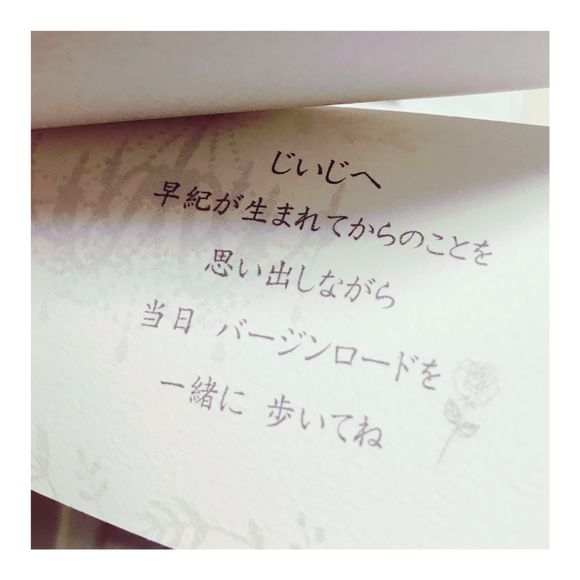 じいじへ
早紀が生まれてからのことを
思い出しながら
当日 バージンロードを
一緒に 歩いてね